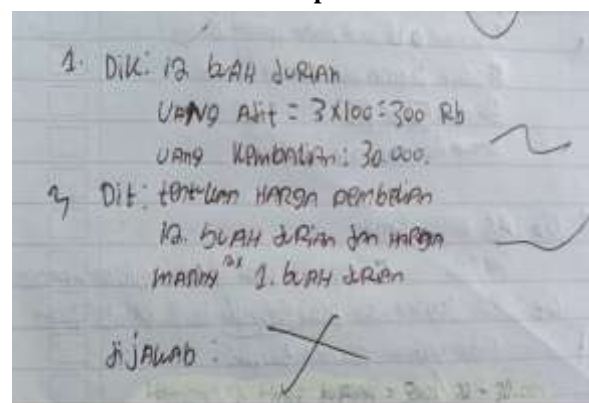 1. Dik: 12 buAH duRiAn
UANg Adit = 3 x 100 = 300 Rb
UAng KemBAliAn : 30.000.
2, Dit : tentukan HARgA pembeliAn
12. buAH duRiAn dan HARgA
mAsing 2x 1. buAH duRiAn
diJAwAb :